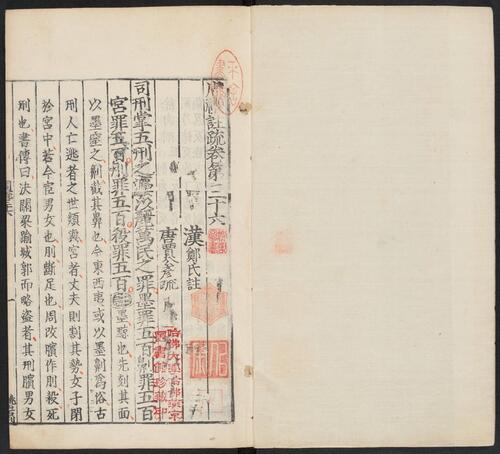 周禮註疏卷第三十六
漢鄭氏註
唐賈公彥疏
司刑掌五刑之灋以麗萬民之罪墨罪五百劓罪五百
宮罪五百刖罪五百殺罪五百墨黥也先刻其面
以墨窒之劓截其鼻也今東西夷或以墨劓為俗古
刑人亡逃者之世類與宮者丈夫則割其勢女子閉
於宮中若今宦男女也刖斷足也周改臏作刖殺死
刑也書傳曰決關梁踰城郭而略盜者其刑臏男女
哈佛大學哈佛燕京
圖書館珍藏印